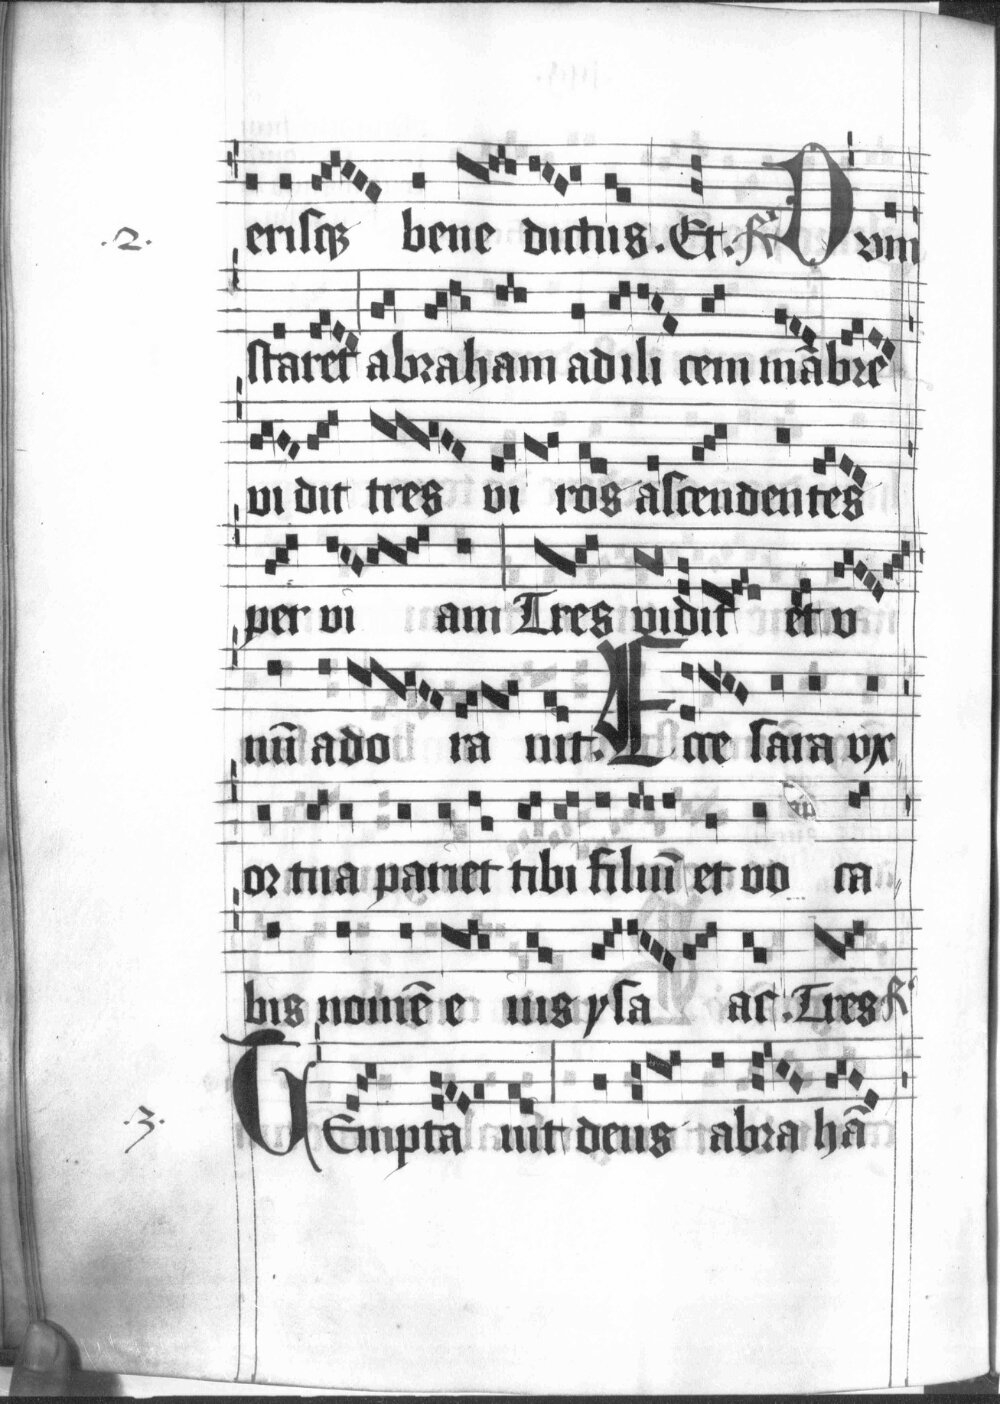 .2. erisqꝫ bene dictus. Et. R̃ Dum
staret abraham ad ili cem mãbre
vi dit tres vi ros ascendentes
per vi am Tres vidit et v
nũ ado ra uit. Ecce sara vx
or tua pariet tibi filiũ et vo ca
bis nomẽ e ius ysa ac. Tres R̃
.3. TEmpta uit deus abra hã